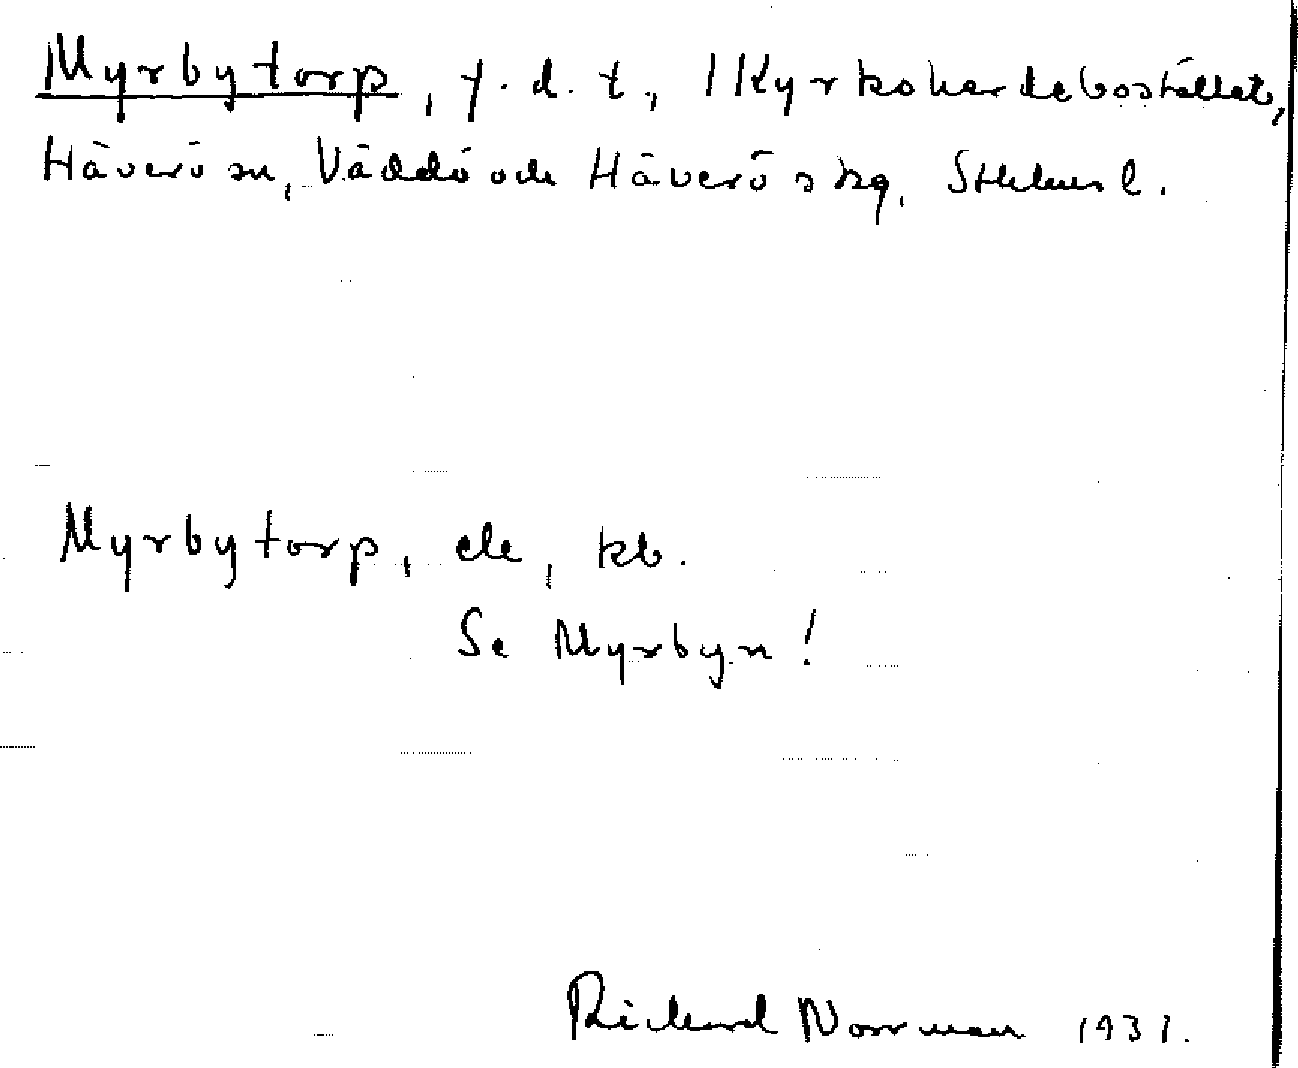 Myrbytorp, f. d. t., 1 Kyrkoherdebostället,
Häverö sn, Väddö och Häverö skg, Sthlms l.
Myrbytorp, ele, kb.
Se Myrbyn!
Rickard Norrman 1931.